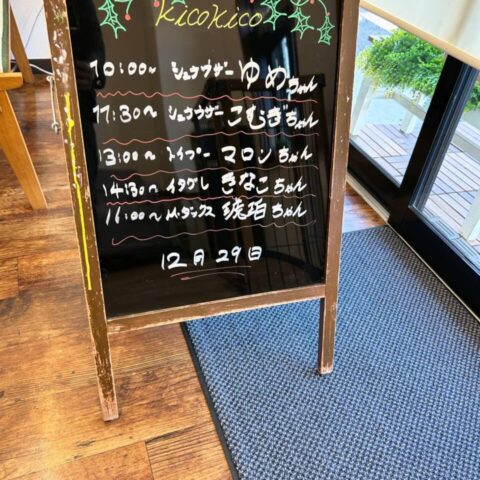 kicokico
10:00〜 シュナウザー ゆめちゃん
11:30〜 シュナウザー こむぎちゃん
13:00〜 トイプー マロンちゃん
14:30〜 イタグレ きなこちゃん
16:00〜 M.ダックス 琥珀ちゃん
12月29日